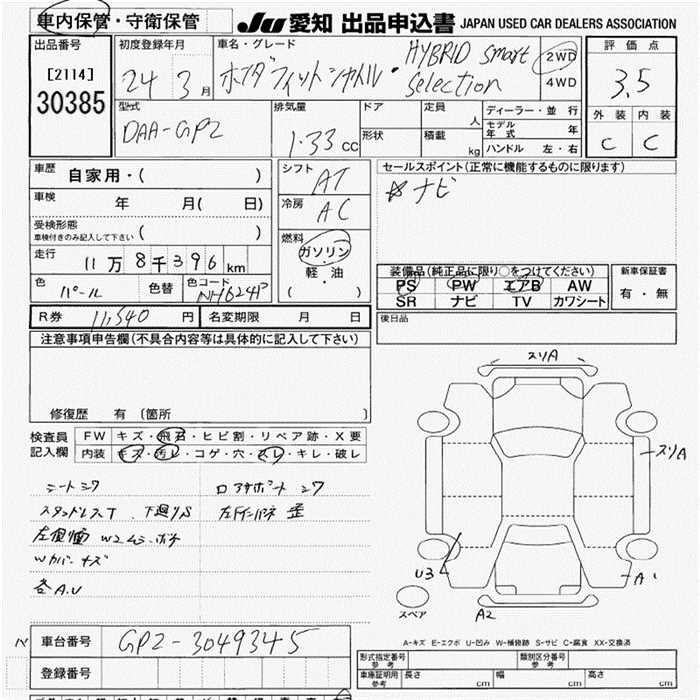 車内保管・守衛保管 JU 愛知 出品申込書 JAPAN USED CAR DEALERS ASSOCIATION
出品番号 初度登録年月 車名・グレード 評価点
[2114] 24 3月 ホンダフィットシャトル・ HYBRID smart selection 2WD 3.5
30385 4WD
型式 排気量 ドア 定員 人 ディーラー・並行 外装 内装
DAA-GP2 1.33cc 形状 積載 kg モデル年式 年 C C
ハンドル 左・右
車歴 自家用・( ) シフト AT セールスポイント(正常に機能するものに限ります)
車検 年 月( 日) 冷房 AC ☆ナビ
受検形態 ( )
車検付きのみ記入して下さい
走行 11万8千396km 燃料 ガソリン・軽・油 ( )
装備品(純正品に限り○をつけてください) 新車保証書
色 パール 色替 色コード NH624P PS PW エアB AW 有・無
SR ナビ TV カワシート
R券 11,540円 名変期限 月 日 後日品
注意事項申告欄(不具合内容等は具体的に記入して下さい)
修復歴 有 〔箇所 〕
検査員記入欄 FW キズ・飛石・ヒビ割・リペア跡・X要
内装 キズ・汚レ・コゲ・穴・スレ・キレ・破レ
シートシワ
下廻りS
各A.U
スリA
スリA
U3
A1
スペア
A2
A-キズ E-エクボ U-凹み W-補修跡 S-サビ C-腐食 XX-交換済
車台番号 GP2-3049345
登録番号
形式指定番号 参考 類別区分番号 参考
車庫証明用 参考 長さ cm 幅 cm 高さ cm